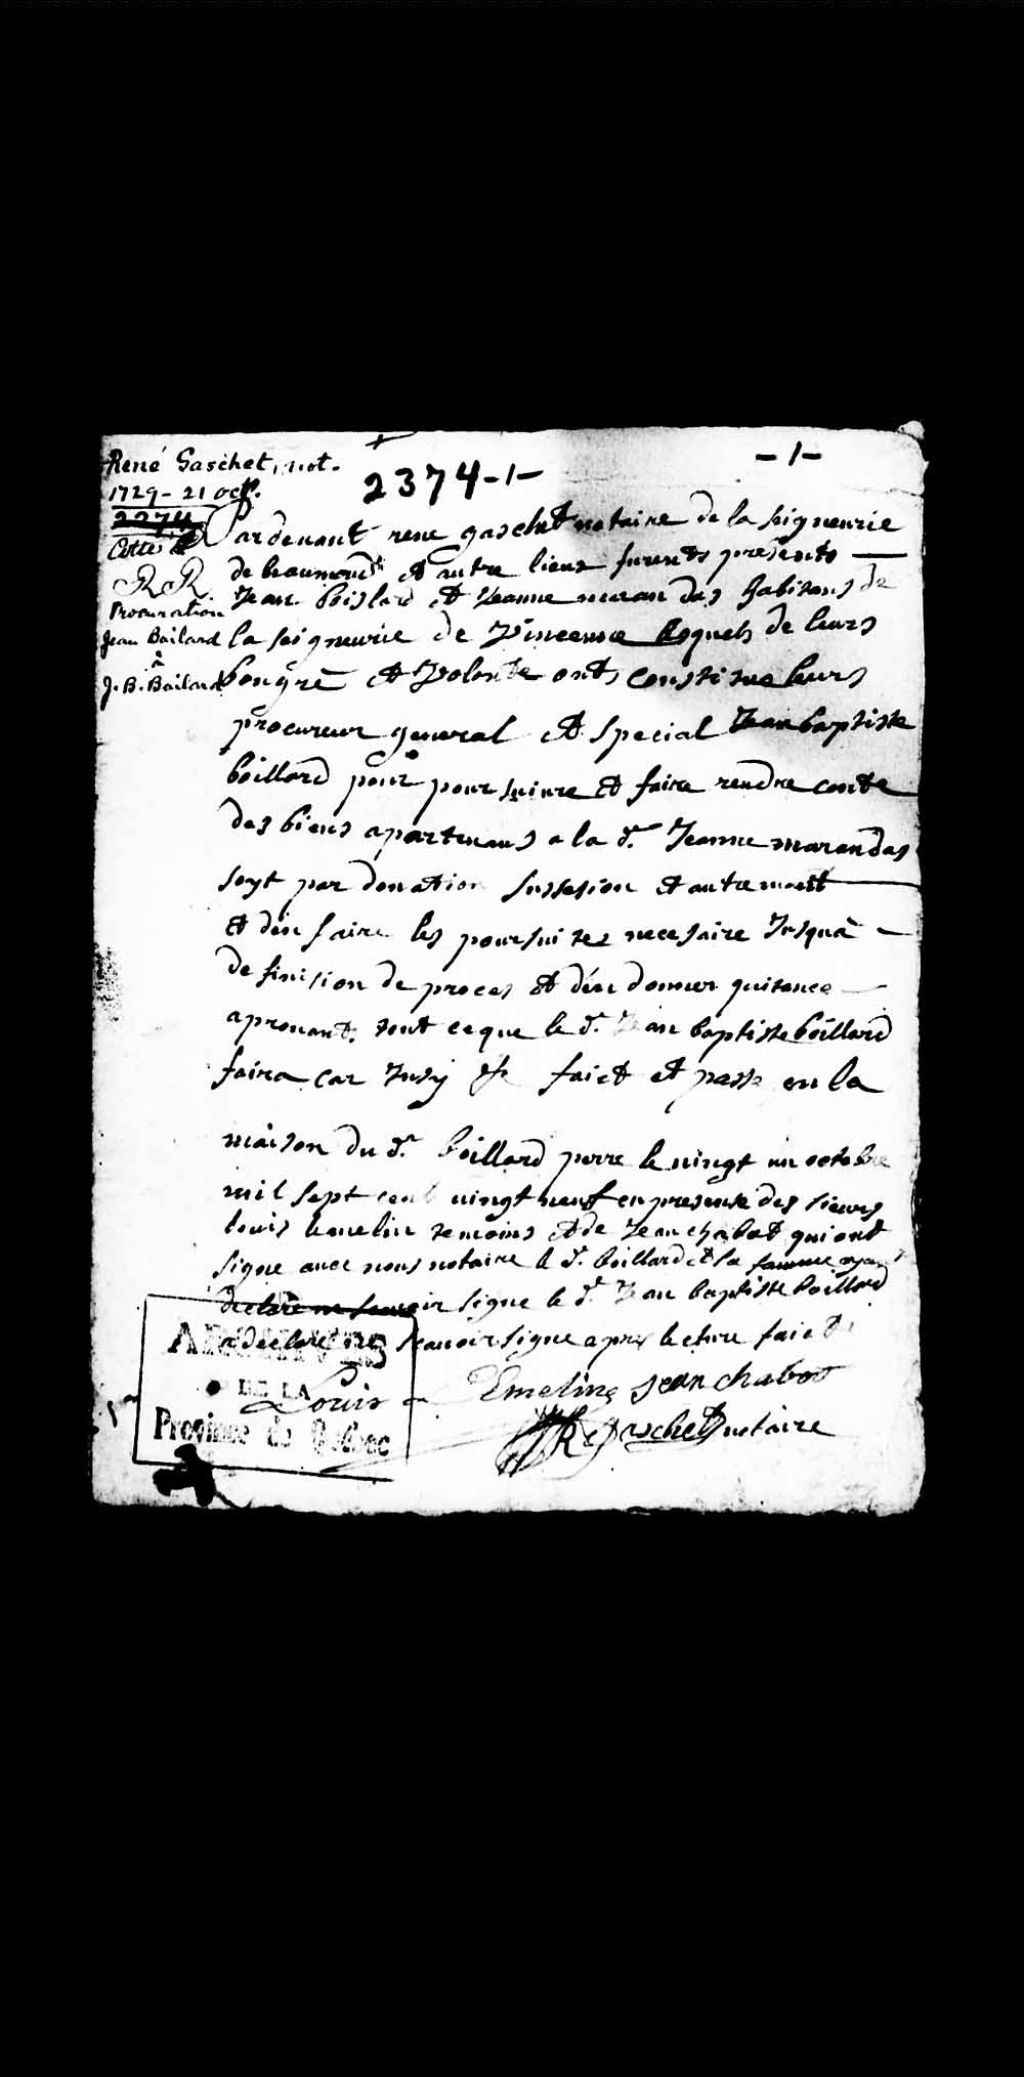 René Gaschet, not.
1729 - 21 oct.
2274
Cotte
RR
Procuration
Jean Boilard
à
J. B. Boilard
2374-1-
-1-
Pardeuant rene gaschet notaire de la seigneurie
de beaumont et autre lieux furents presents
Jean boislard et Jeanne marandas habitans de
la seigneurie de Vincenne lesquels de leurs
bongré et volonte onts constitue leurs
procureur general et special Jean baptiste
boillard pour poursuiure et faire rendre conte
des biens apartenans a la dt. Jeanne marandas
soyt par donation sussesion et autrement
et den faire les poursuites necesaire Jusqua
definision de proces et den donner quitance
aprouant tout ce que le dt. Jean baptiste boillard
faira car Insy &c faict et passe en la
maison du dt. boillard perre le vingt un octobre
mil sept cent uingt neuf en presense des sieurs
louis lemelin temoins et de Jean chabot qui ont
signe auec nous notaire le dt. boillard et sa famme ayant
declare ne scauoir signe le dt. Jean baptiste boillard
a declare ne scauoir signe apres lecture faict
Louis Emeling jean chabot
R Gaschet notaire
ARCHIVES
DE LA
Province de Québec